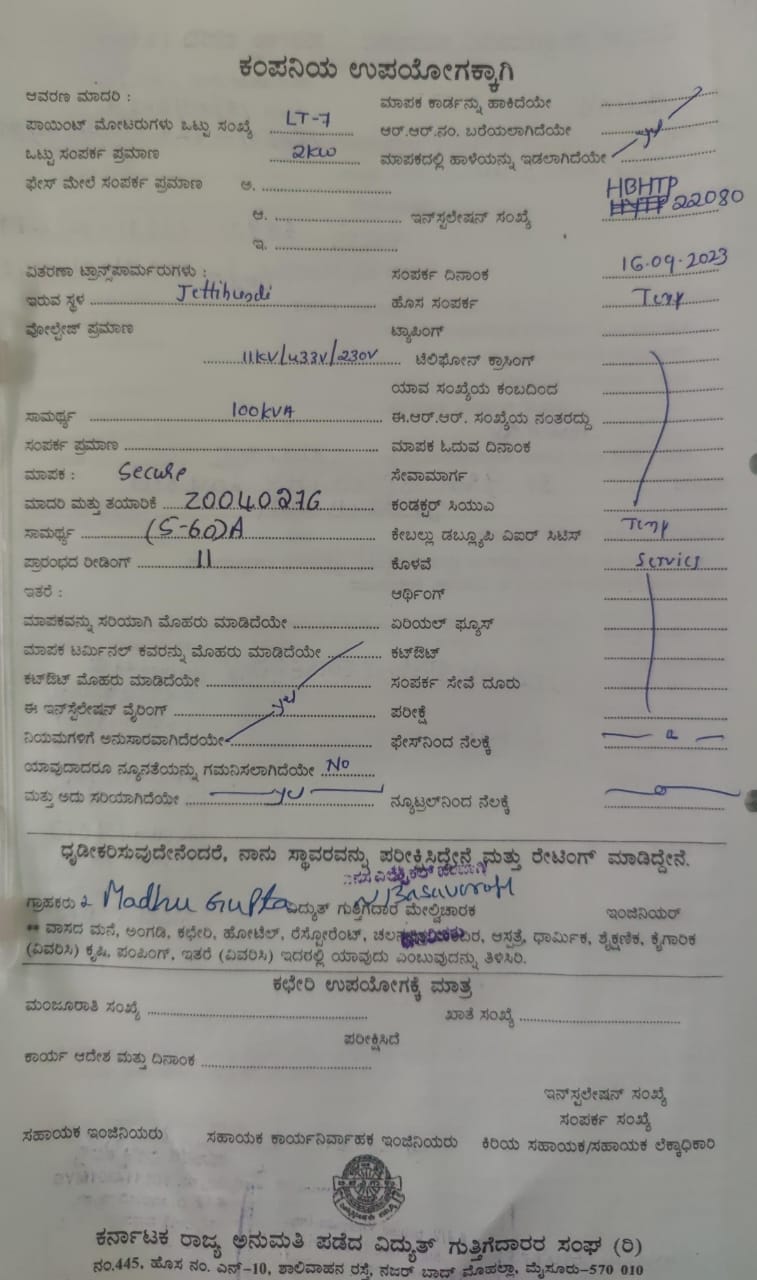 ಕಂಪನಿಯ ಉಪಯೋಗಕ್ಕಾಗಿ
ಆವರಣ ಮಾದರಿ :
ಮಾಪಕ ಕಾರ್ಡನ್ನು ಹಾಕಿದೆಯೇ
ಪಾಯಿಂಟ್ ಮೋಟರುಗಳು ಒಟ್ಟು ಸಂಖ್ಯೆ LT-7
ಆರ್.ಆರ್.ನಂ. ಬರೆಯಲಾಗಿದೆಯೇ
ಒಟ್ಟು ಸಂಪರ್ಕ ಪ್ರಮಾಣ 2KW
ಮಾಪಕದಲ್ಲಿ ಹಾಳೆಯನ್ನು ಇಡಲಾಗಿದೆಯೇ yes
ಫೇಸ್ ಮೇಲೆ ಸಂಪರ್ಕ ಪ್ರಮಾಣ ಅ.
ಆ.
ಇನ್‌ಸ್ಟಲೇಷನ್ ಸಂಖ್ಯೆ HBHTP 22080
ಇ.
ವಿತರಣಾ ಟ್ರಾನ್ಸ್‌ಪಾರ್ಮರುಗಳು :
ಸಂಪರ್ಕ ದಿನಾಂಕ 16.09.2023
ಇರುವ ಸ್ಥಳ Jettihundi
ಹೊಸ ಸಂಪರ್ಕ Temp
ವೋಲ್ಟೇಜ್ ಪ್ರಮಾಣ
ಟ್ಯಾಪಿಂಗ್
11KV/433V/230V
ಟೆಲಿಫೋನ್ ಕ್ರಾಸಿಂಗ್
ಯಾವ ಸಂಖ್ಯೆಯ ಕಂಬದಿಂದ
ಸಾಮರ್ಥ್ಯ 100KVA
ಈ.ಆರ್.ಆರ್. ಸಂಖ್ಯೆಯ ನಂತರದ್ದು
ಸಂಪರ್ಕ ಪ್ರಮಾಣ
ಮಾಪಕ ಓದುವ ದಿನಾಂಕ
ಮಾಪಕ : Secure
ಸೇವಾಮಾರ್ಗ
ಮಾದರಿ ಮತ್ತು ತಯಾರಿಕೆ 20040276
ಕಂಡಕ್ಟರ್ ಸಿಯುವಿ
ಸಾಮರ್ಥ್ಯ (5-60)A
ಕೇಬಲ್ಲು ಡಬ್ಲ್ಯೂಪಿ ವಿಐರ್ ಸಿಟಿಸ್ Temp
ಪ್ರಾರಂಭದ ರೀಡಿಂಗ್ 11
ಕೊಳವೆ Service
ಇತರೆ :
ಆರ್ಥಿಂಗ್
ಮಾಪಕವನ್ನು ಸರಿಯಾಗಿ ಮೊಹರು ಮಾಡಿದೆಯೇ
ಏರಿಯಲ್ ಫ್ಯೂಸ್
ಮಾಪಕ ಟರ್ಮಿನಲ್ ಕವರನ್ನು ಮೊಹರು ಮಾಡಿದೆಯೇ
ಕಟ್‌ಔಟ್
ಕಟ್‌ಔಟ್ ಮೊಹರು ಮಾಡಿದೆಯೇ
ಸಂಪರ್ಕ ಸೇವೆ ದೂರು
ಈ ಇನ್‌ಸ್ಟೆಲೇಷನ್ ವೈರಿಂಗ್ yes
ಪರೀಕ್ಷೆ
ನಿಯಮಗಳಿಗೆ ಅನುಸಾರವಾಗಿದೆರಯೇ
ಫೇಸ್‌ನಿಂದ ನೆಲಕ್ಕೆ
ಯಾವುದಾದರೂ ನ್ಯೂನತೆಯನ್ನು ಗಮನಿಸಲಾಗಿದೆಯೇ No
ಮತ್ತು ಅದು ಸರಿಯಾಗಿದೆಯೇ yes
ನ್ಯೂಟ್ರಲ್‌ನಿಂದ ನೆಲಕ್ಕೆ
ಧೃಡೀಕರಿಸುವುದೇನೆಂದರೆ, ನಾನು ಸ್ಥಾವರವನ್ನು ಪರೀಕ್ಷಿಸಿದ್ದೇನೆ ಮತ್ತು ರೇಟಿಂಗ್ ಮಾಡಿದ್ದೇನೆ.
ಗ್ರಾಹಕರು Madhu Gupta ವಿದ್ಯುತ್ ಗುತ್ತಿಗೆದಾರ ಮೇಲ್ವಿಚಾರಕ ಇಂಜಿನಿಯರ್
** ವಾಸದ ಮನೆ, ಅಂಗಡಿ, ಕಛೇರಿ, ಹೋಟೆಲ್, ರೆಸ್ಟೋರೆಂಟ್, ಆಸ್ಪತ್ರೆ, ಧಾರ್ಮಿಕ, ಶೈಕ್ಷಣಿಕ, ಕೈಗಾರಿಕ
(ವಿವರಿಸಿ) ಕೃಷಿ, ಪಂಪಿಂಗ್, ಇತರೆ (ವಿವರಿಸಿ) ಇದರಲ್ಲಿ ಯಾವುದು ಎಂಬುವುದನ್ನು ತಿಳಿಸಿರಿ.
ಕಛೇರಿ ಉಪಯೋಗಕ್ಕೆ ಮಾತ್ರ
ಮಂಜೂರಾತಿ ಸಂಖ್ಯೆ
ಖಾತೆ ಸಂಖ್ಯೆ
ಪರೀಕ್ಷಿಸಿದೆ
ಕಾರ್ಯ ಆದೇಶ ಮತ್ತು ದಿನಾಂಕ
ಇನ್‌ಸ್ಟಲೇಷನ್ ಸಂಖ್ಯೆ
ಸಂಪರ್ಕ ಸಂಖ್ಯೆ
ಸಹಾಯಕ ಇಂಜಿನಿಯರು ಸಹಾಯಕ ಕಾರ್ಯನಿರ್ವಾಹಕ ಇಂಜಿನಿಯರು ಕಿರಿಯ ಸಹಾಯಕ/ಸಹಾಯಕ ಲೆಕ್ಕಾಧಿಕಾರಿ
ಕರ್ನಾಟಕ ರಾಜ್ಯ ಅನುಮತಿ ಪಡೆದ ವಿದ್ಯುತ್ ಗುತ್ತಿಗೆದಾರರ ಸಂಘ (ರಿ)
ನಂ.445, ಹೊಸ ನಂ. ಎನ್-10, ಶಾಲಿವಾಹನ ರಸ್ತೆ, ನಜರ್ ಬಾದ್ ಮೊಹಲ್ಲಾ, ಮೈಸೂರು-570 010